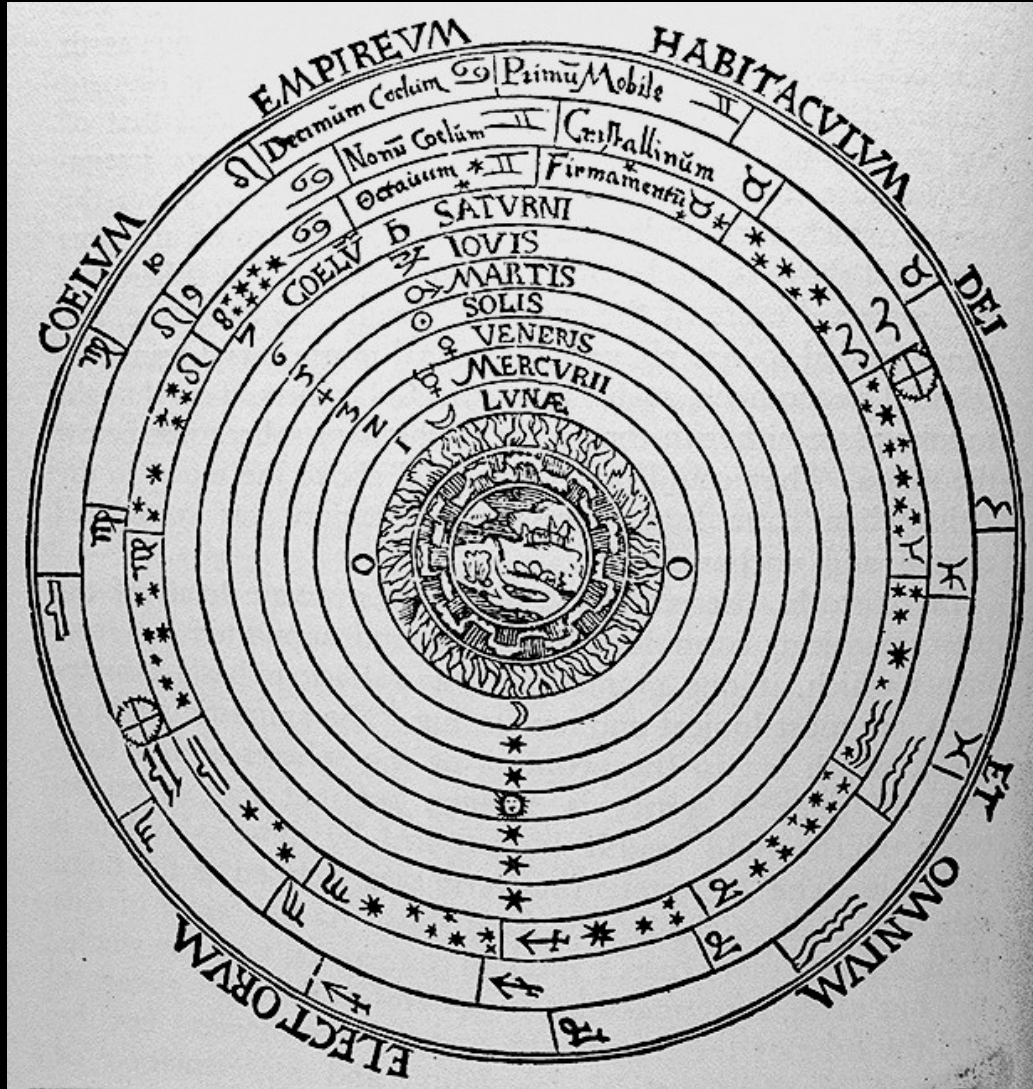 COELVM EMPIREVM HABITACVLVM DEI ET OMNIVM ELECTORVM
10 Decimum Coelum ♋ Primũ Mobile ♊
9 Nonũ Coelũm ♊ Cristallinũm ♉
8 Octauum ♊ Firmamentũ ♉
7 COELV̄ ♄ SATVRNI
6 ♃ IOVIS
5 ♂ MARTIS
4 ☉ SOLIS
3 ♀ VENERIS
2 ☿ MERCVRII
1 ☽ LVNÆ